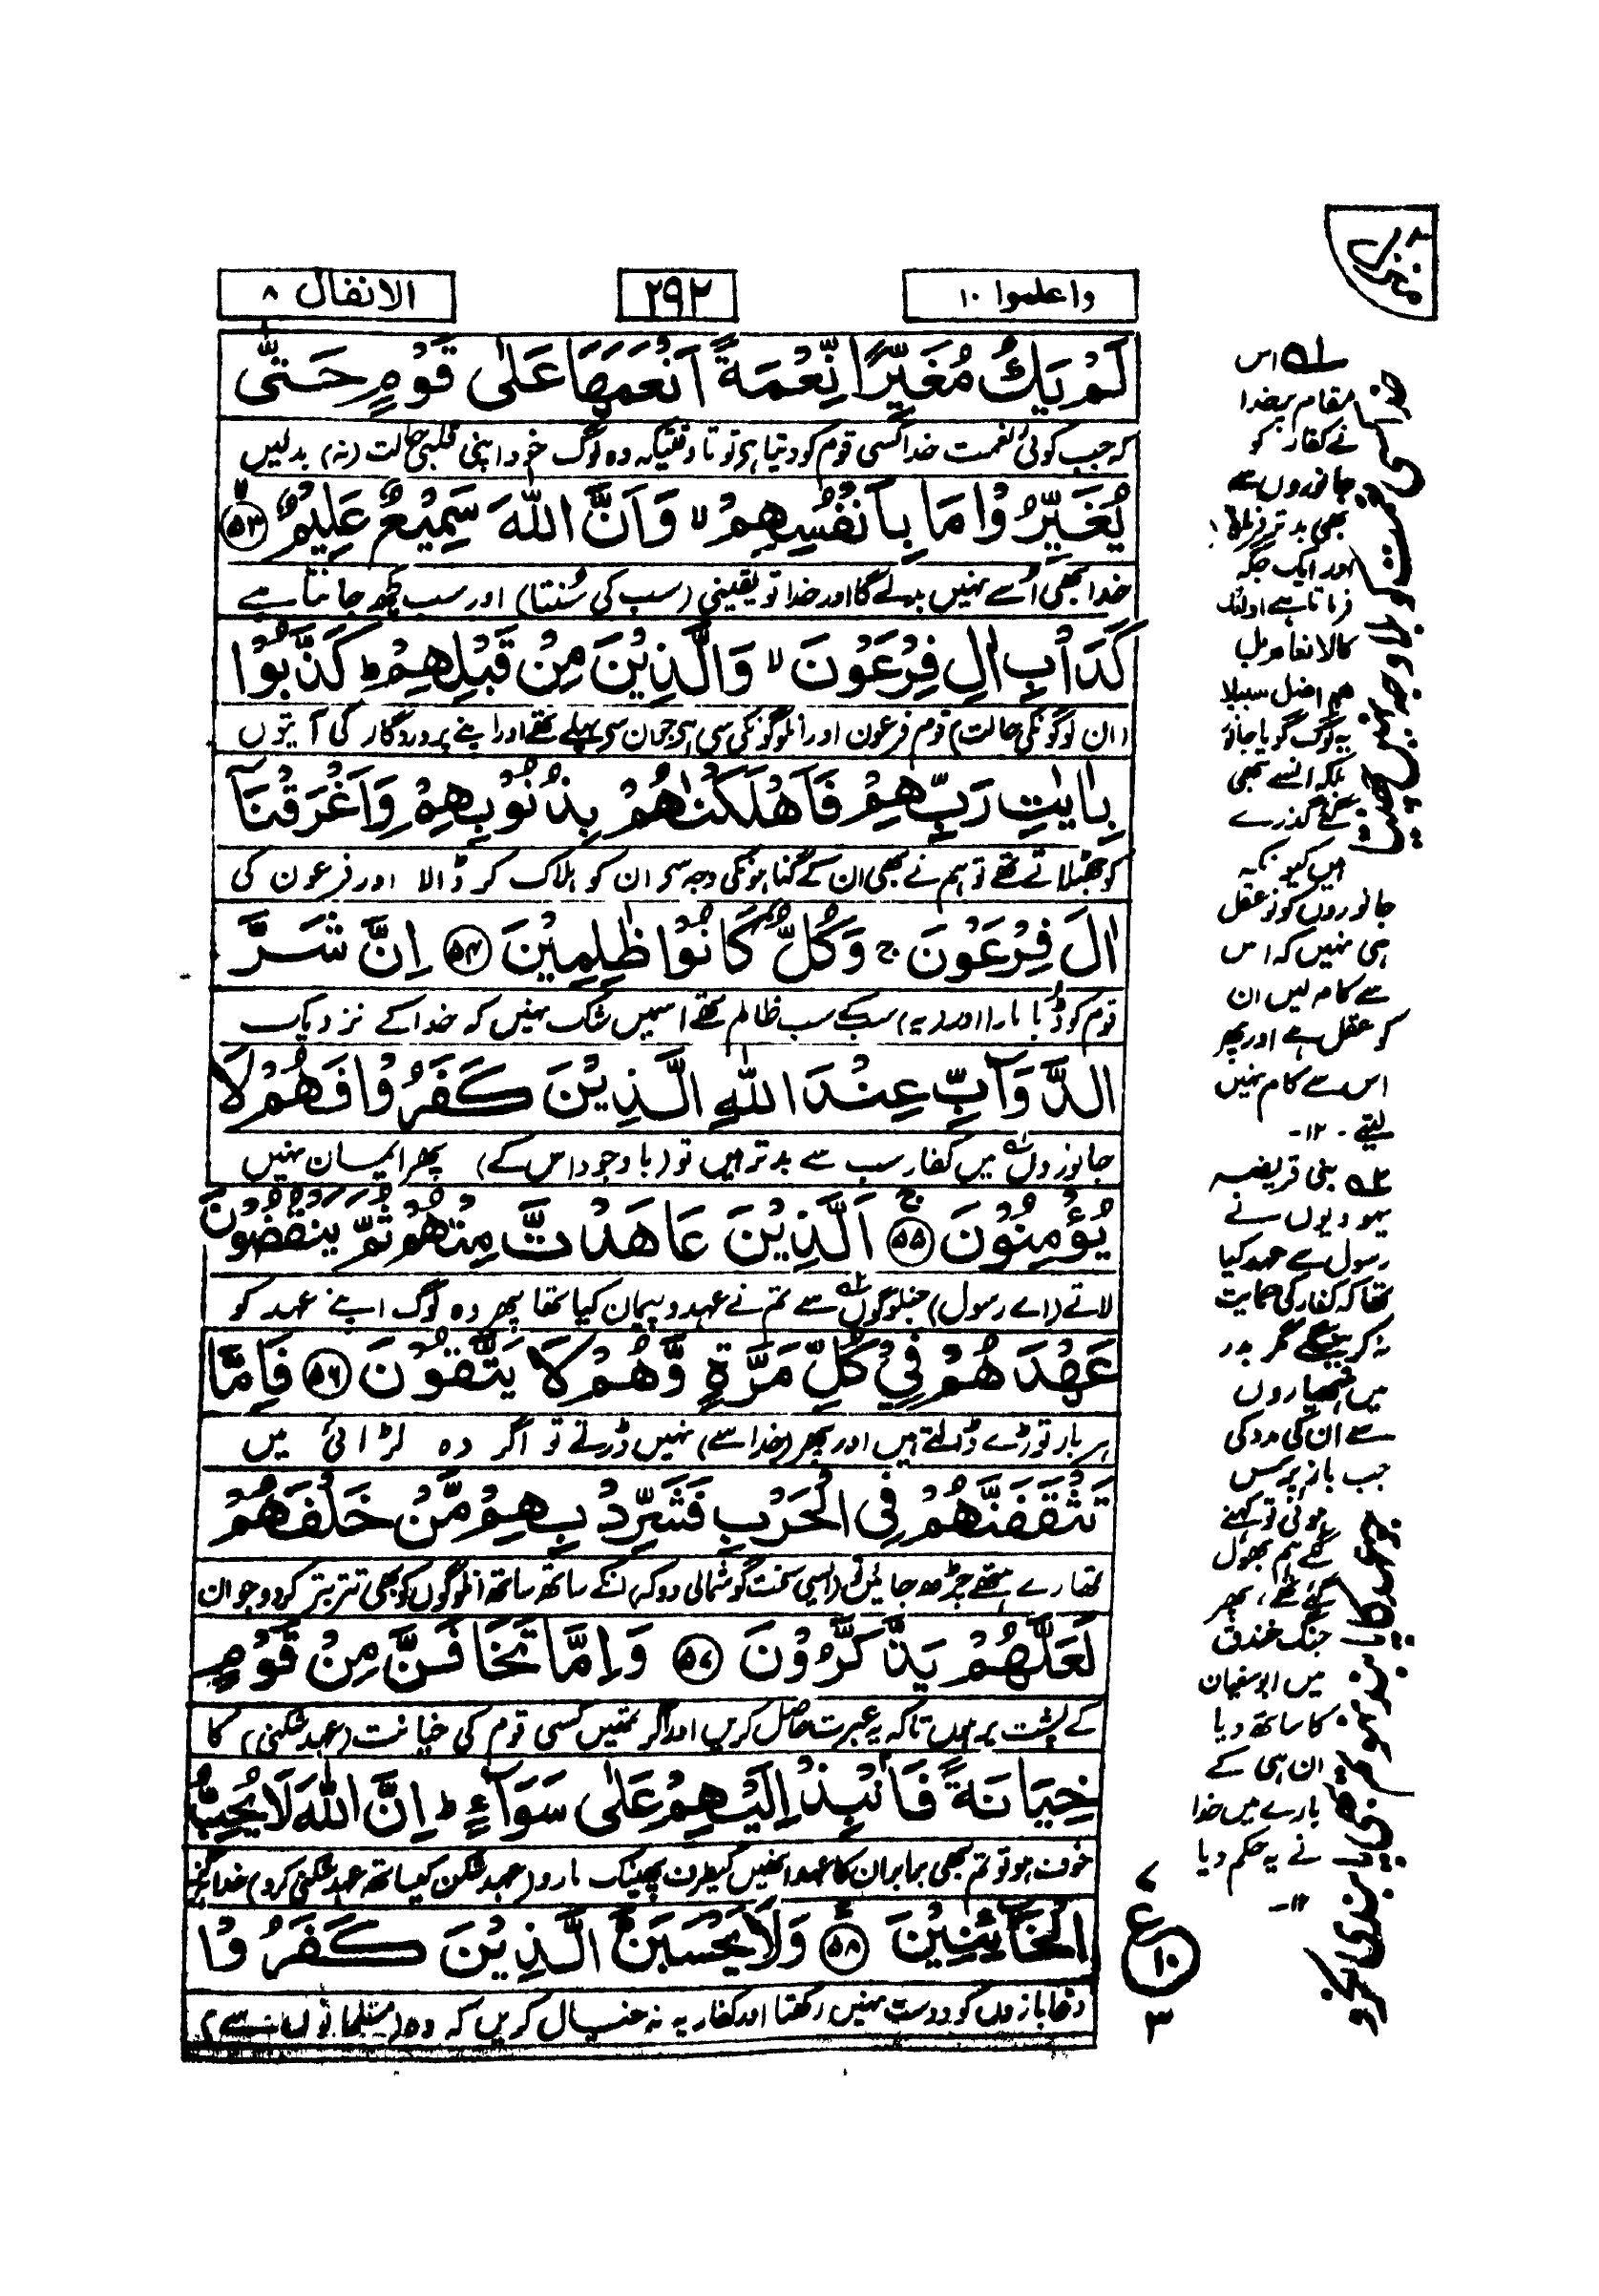 منزل
واعلموا ۱۰
۲۹۲
الانفال ۸
لَمْ يَكُ مُغَيِّرًا نِّعْمَةً اَنْعَمَهَا عَلٰى قَوْمٍ حَتّٰى
کہ جب کوئی نعمت خدا کسی قوم کو دیتا ہی تو تا وقتیکہ وہ لوگ خود اپنی قلبی حالت (نہ) بدلیں
يُغَيِّرُوْا مَا بِاَنْفُسِهِمْ ۙ وَاَنَّ اللّٰهَ سَمِيْعٌ عَلِيْمٌ ۝۵۳
خدا بھی اُسے نہیں بدلے گا اور خدا تو یقینی (سب کی سُنتا) اور سب کچھ جانتا ہے
كَدَاْبِ اٰلِ فِرْعَوْنَ ۙ وَالَّذِيْنَ مِنْ قَبْلِهِمْ ؕ كَذَّبُوْا
(ان لوگونکی حالت) قوم فرعون اور انلوگونکی سی ہی جو ان سی پہلے تھے اور اپنے پروردگار کی آیتوں
بِاٰيٰتِ رَبِّهِمْ فَاَهْلَكْنٰهُمْ بِذُنُوْبِهِمْ وَاَغْرَقْنَآ
کو جھٹلاتے تھے تو ہم نے بھی ان کے گناہونکی وجہ سی ان کو ہلاک کر ڈالا اور فرعون کی
اٰلَ فِرْعَوْنَ ۚ وَكُلٌّ كَانُوْا ظٰلِمِيْنَ ۝۵۴ اِنَّ شَرَّ
قوم کو ڈُبا مارا اور (یہ) سب کے سب ظالم تھے اسمیں شک نہیں کہ خدا کے نزدیک
الدَّوَآبِّ عِنْدَ اللّٰهِ الَّذِيْنَ كَفَرُوْا فَهُمْ لَا
جانوروں میں کفار سب سے بدتر ہیں تو (با وجود اس کے) پھر ایمان نہیں
يُؤْمِنُوْنَ ۝۵۵ اَلَّذِيْنَ عَاهَدْتَّ مِنْهُمْ ثُمَّ يَنْقُضُوْنَ
لاتے (اے رسول) جنلوگوں سے تم نے عہد و پیمان کیا تھا پھر وہ لوگ اپنے عہد کو
عَهْدَهُمْ فِيْ كُلِّ مَرَّةٍ وَّهُمْ لَا يَتَّقُوْنَ ۝۵۶ فَاِمَّا
ہر بار توڑے ڈالتے ہیں اور پھر (خدا سے) نہیں ڈرتے تو اگر وہ لڑائی میں
تَثْقَفَنَّهُمْ فِى الْحَرْبِ فَشَرِّدْ بِهِمْ مَّنْ خَلْفَهُمْ
تمھارے ہتھے چڑھ جائیں تو (ایسی سخت گوشمالی دو کہ) انکے ساتھ ساتھ انلوگوں کو بھی تتر بتر کردو جو ان
لَعَلَّهُمْ يَذَّكَّرُوْنَ ۝۵۷ وَاِمَّا تَخَافَنَّ مِنْ قَوْمٍ
کے پشت پر ہوں تاکہ یہ عبرت حاصل کریں اور اگر تمھیں کسی قوم کی خیانت (عہد شکنی) کا
خِيَانَةً فَانْبِذْ اِلَيْهِمْ عَلٰى سَوَآءٍ ؕ اِنَّ اللّٰهَ لَا يُحِبُّ
خوف ہو تو تم بھی برابر ان کا عہد انھیں کیطرف پھینک مارو (عہد شکن کیساتھ عہد شکنی کرو) خدا ہرگز
الْخَآئِنِيْنَ ۝۵۸ وَلَا يَحْسَبَنَّ الَّذِيْنَ كَفَرُوْا
دغابازوں کو دوست نہیں رکھتا اور کفار یہ نہ خیال کریں کہ وہ (مسلمانوں سے)
۱ے اس
مقام پر خدا
نے کفار کو
جانوروں سے
بھی بدتر فرمایا
اور ایک جگہ
فرماتا ہے اولئک
کالانعام بل
ھم اضل سبیلا
یہ لوگ گویا جانور
بلکہ انسے بھی
گئے گذرے
ہیں کیونکہ
جانوروں کو تو عقل
ہی نہیں کہ اس
سے کام لیں ان
کو عقل ہے اور پھر
اس سے کام نہیں
لیتے۔ ۱۲-
۲ے بنی قریضہ
یہودیوں نے
رسول سے عہد کیا
تھا کہ کفار کی حمایت
نہ کرینگے مگر بدر
میں ہتھیاروں
سے ان کی مدد کی
جب باز پرس
ہوئی تو کہنے
لگے ہم بھول
گئے تھے، پھر
جنگ خندق
میں ابوسفیان
کا ساتھ دیا
ان ہی کے
بارے میں خدا
نے یہ حکم دیا
۱۲-
خدا کسی نعمت کو بلا وجہ نہیں چھینتا
جو عہد کا پابند نہ ہو
۷
ع
۱۰
۳